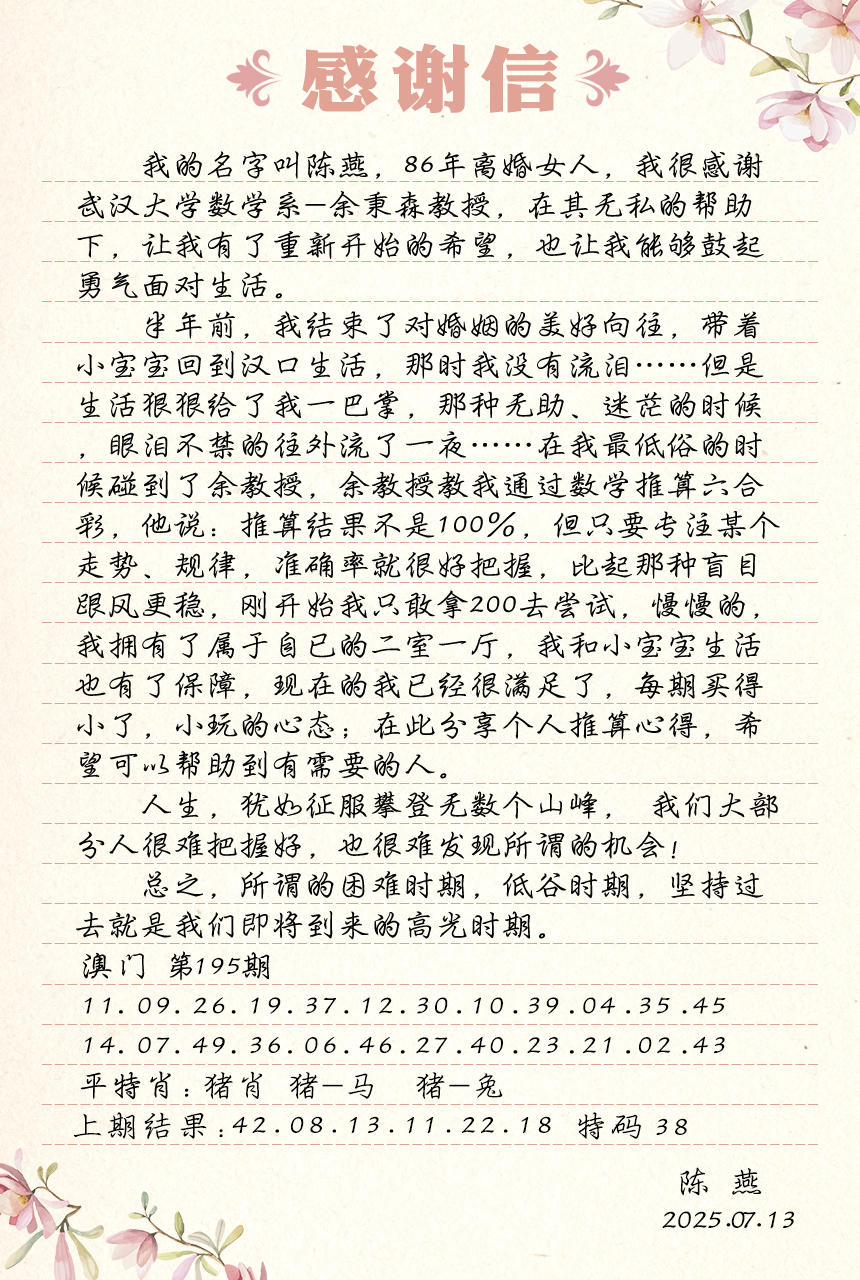 感谢信
我的名字叫陈燕，86年离婚女人，我很感谢
武汉大学数学系—余秉森教授，在其无私的帮助
下，让我有了重新开始的希望，也让我能够鼓起
勇气面对生活。
半年前，我结束了对婚姻的美好向往，带着
小宝宝回到汉口生活，那时我没有流泪……但是
生活狠狠给了我一巴掌，那种无助、迷茫的时候
，眼泪不禁的往外流了一夜……在我最低俗的时
候碰到了余教授，余教授教我通过数学推算六合
彩，他说：推算结果不是100%，但只要专注某个
走势、规律，准确率就很好把握，比起那种盲目
跟风更稳，刚开始我只敢拿200去尝试，慢慢的，
我拥有了属于自已的二室一厅，我和小宝宝生活
也有了保障，现在的我已经很满足了，每期买得
小了，小玩的心态；在此分享个人推算心得，希
望可以帮助到有需要的人。
人生，犹如征服攀登无数个山峰， 我们大部
分人很难把握好，也很难发现所谓的机会！
总之，所谓的困难时期，低谷时期，坚持过
去就是我们即将到来的高光时期。
澳门 第195期
11.09.26.19.37.12.30.10.39.04.35.45
14.07.49.36.06.46.27.40.23.21.02.43
平特肖：猪肖 猪—马 猪—兔
上期结果：42.08.13.11.22.18 特码 38
陈 燕
2025.07.13